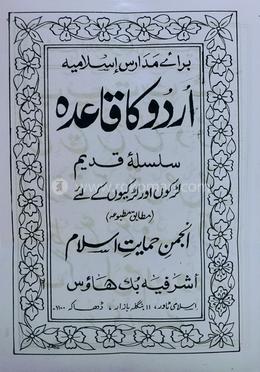 برائے مدارس اسلامیہ
اردو کا قاعدہ
سلسلۂ قدیم
لڑکوں اور لڑکیوں کے لئے
(مطابق مطبوعہ)
انجمن حمایت اسلام
اشرفیہ بک هاؤس
اسلامی ٹاور، ۱۱ بنگلہ بازار، ڈھاکہ ۱۱۰۰۔